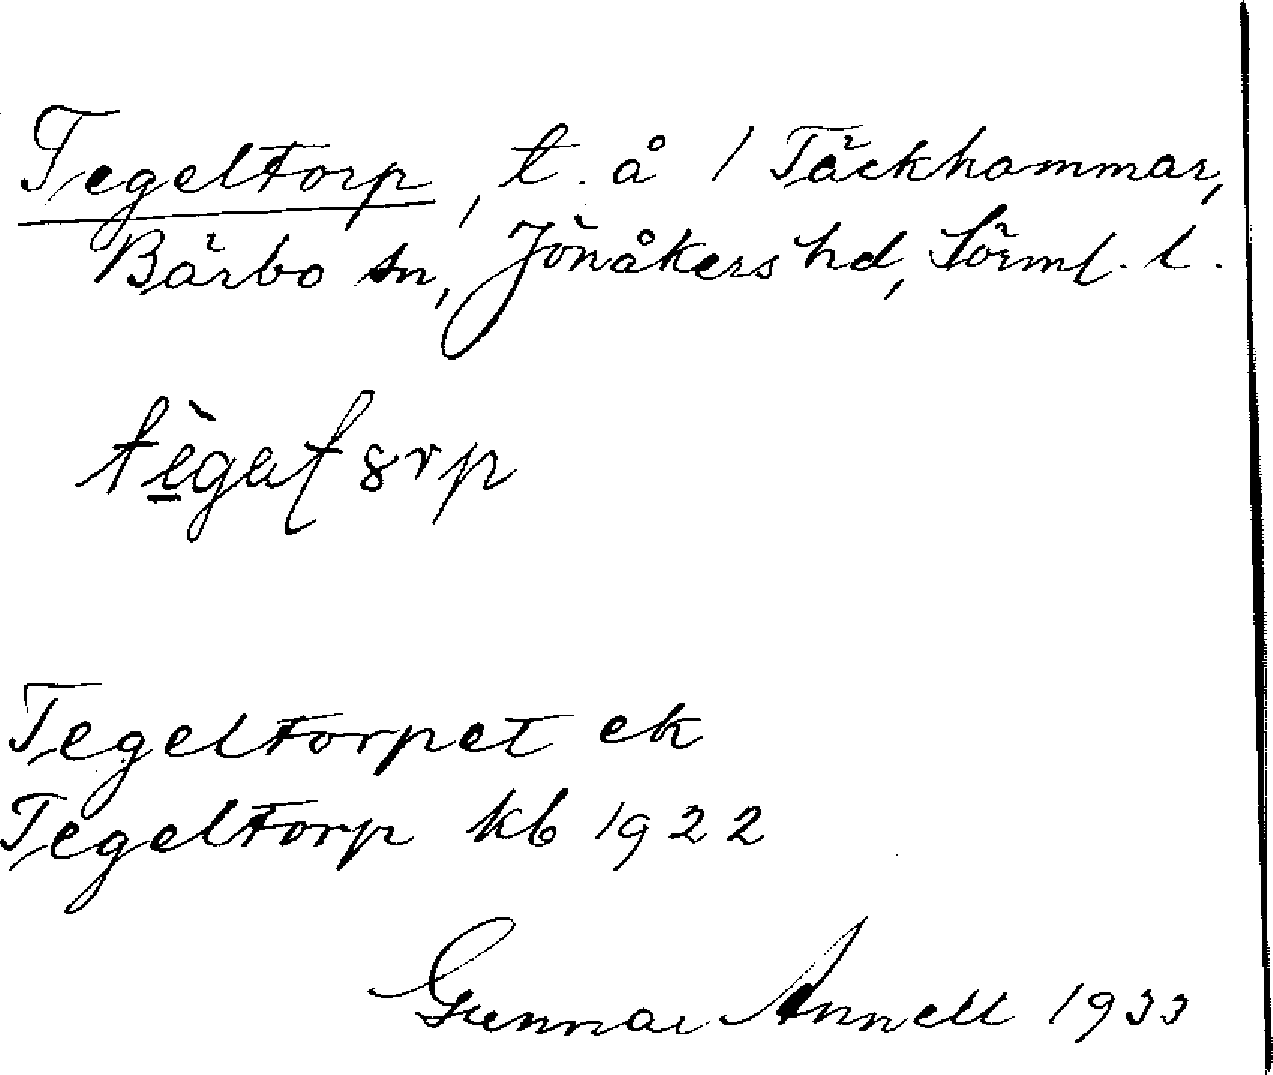 Tegeltorp, t. å 1 Täckhammar,
Bärbo sn, Jönåkers hd, Sörml. l.
Tegeltorpet ek
Tegeltorp kb 1922
Gunnar Annell 1933